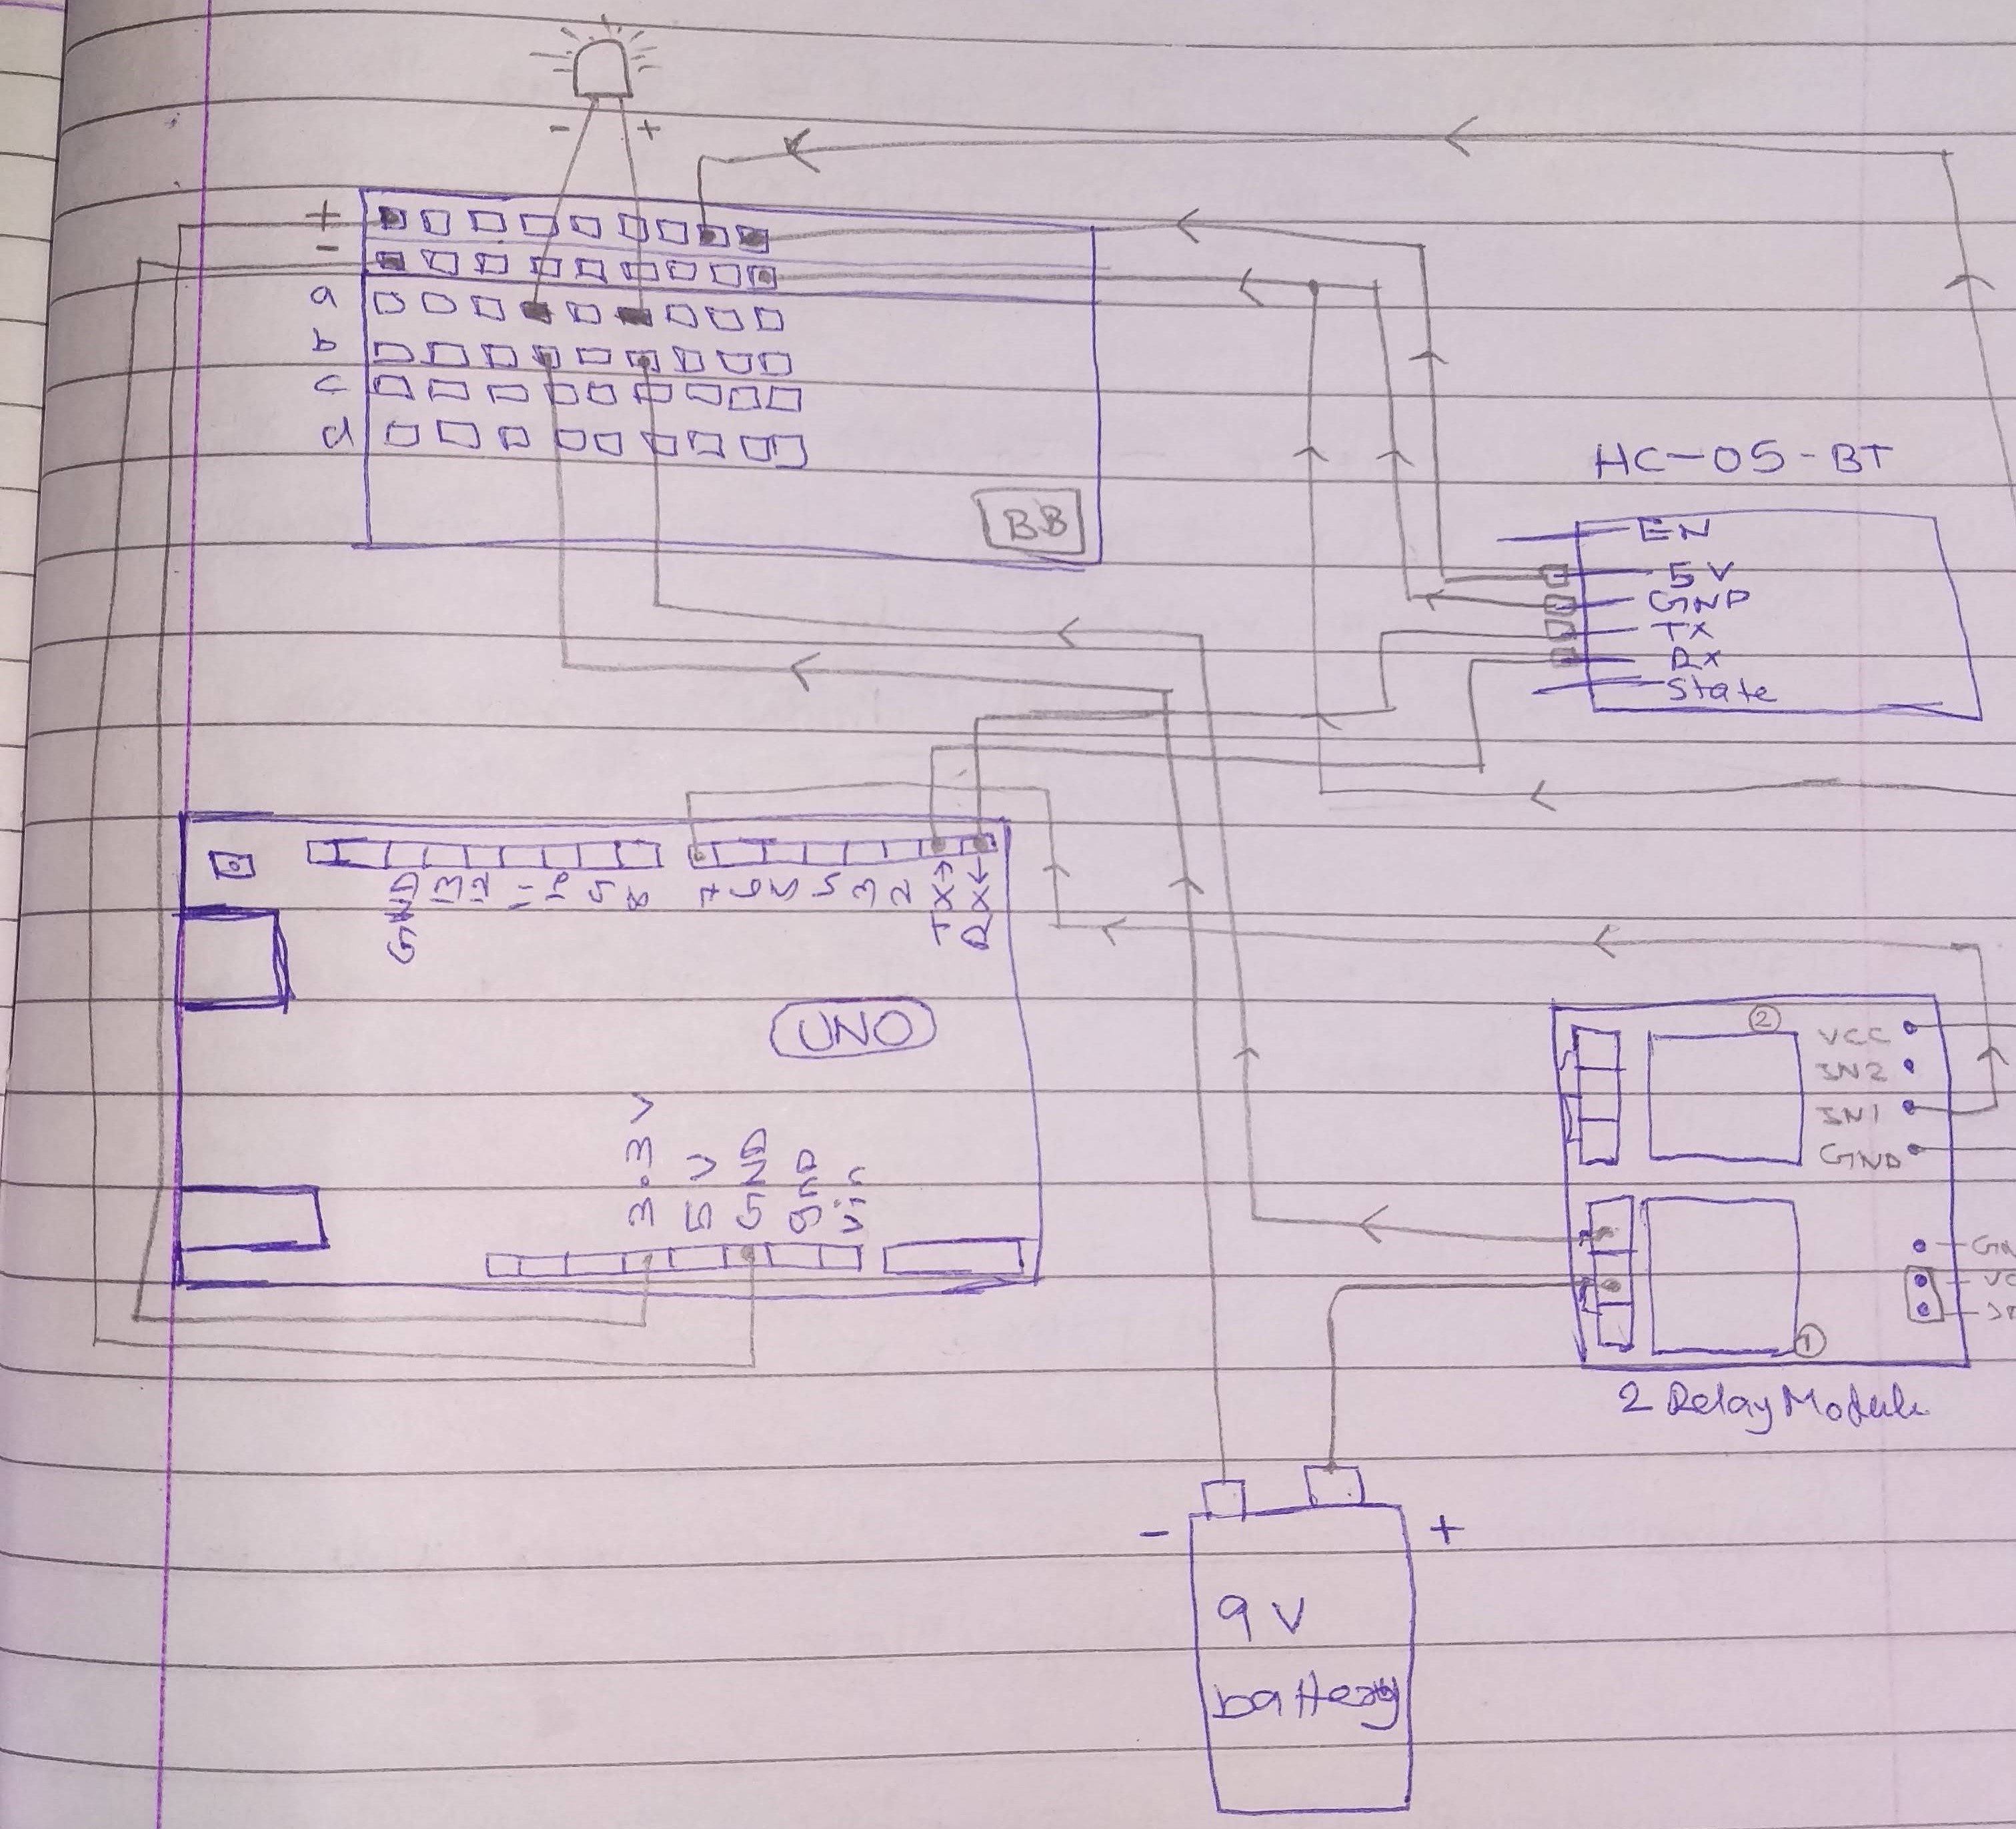 - +
+
-
a
b
c
d
BB
HC-05-BT
EN
5V
GND
TX
RX
State
GND 13 12 11 10 9 8 7 6 5 4 3 2 TX→ RX←
UNO
3.3V 5V GND GND Vin
②
VCC
IN2
IN1
GND
①
2 Relay Module
- +
9V
battery